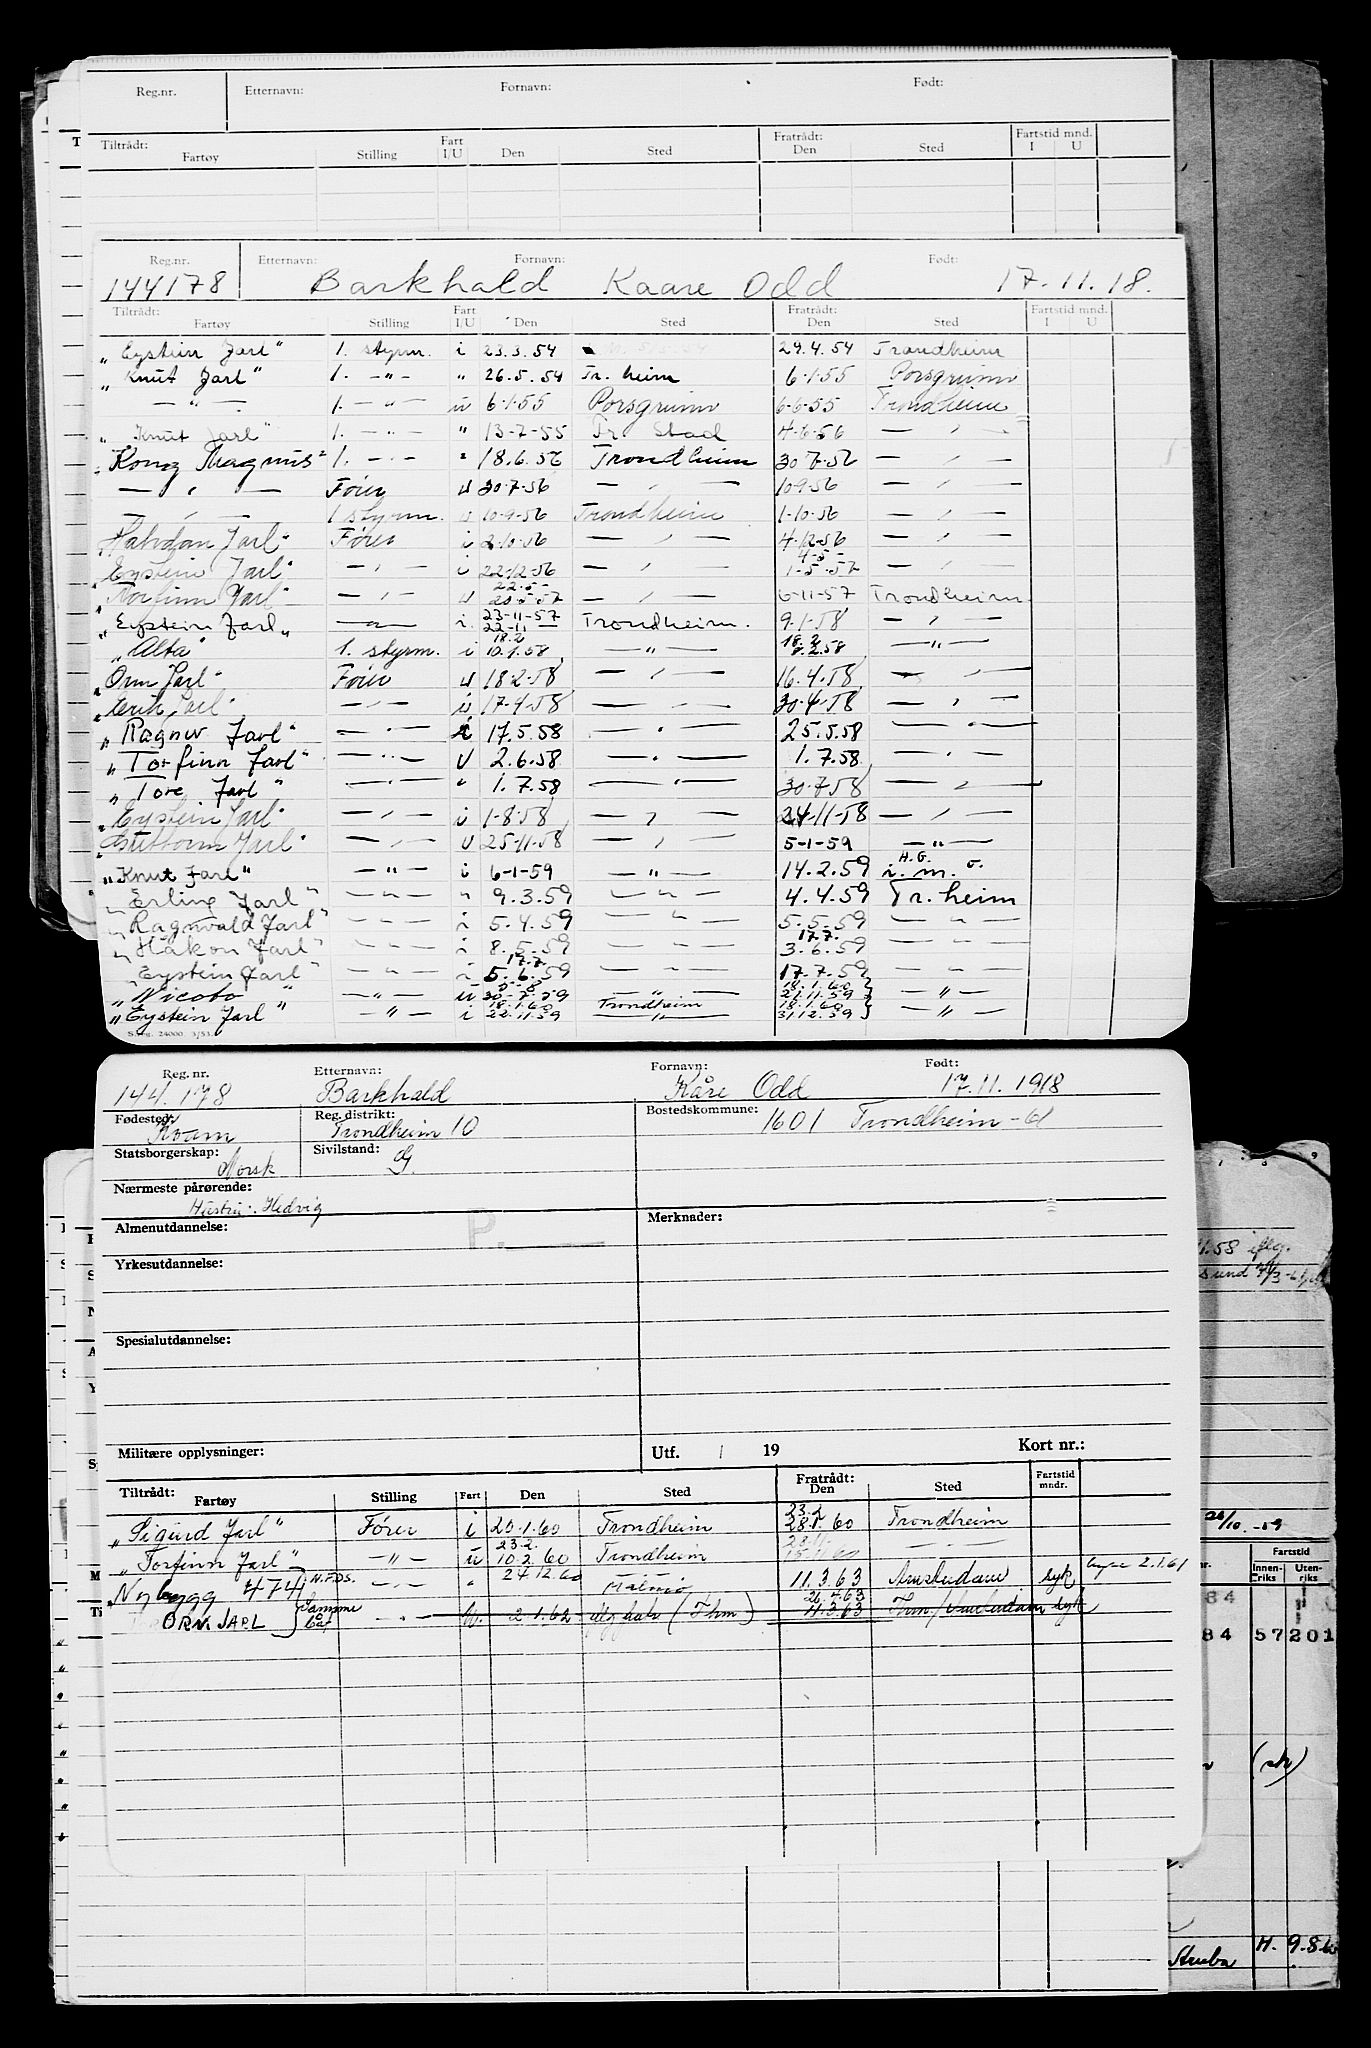 Reg.nr. Etternavn: Fornavn: Født:
Tiltrådt: Fratrådt: Fartstid mnd.
Fartøy Stilling Fart I/U Den Sted Den Sted I U
Reg.nr. Etternavn: Fornavn: Født:
144178 Barkhald Kaare Odd 17.11.18.
Tiltrådt: Fratrådt: Fartstid mnd.
Fartøy Stilling Fart I/U Den Sted Den Sted I U
"Eystein Jarl" 1. styrm. i 23.3.54 29.4.54 Trondheim
"Knut Jarl" 1. —"— " 26.5.54 Tr. heim 6-1-55 Porsgrunn
—"— 1. —"— u 6-1-55 Porsgrunn 6-6-55 Trondheim
"Knut Jarl" 1. —"— " 13-7-55 Fr. Stad 4-6-56 —"—
"Kong Magnus" 1. —"— " 18.6.56 Trondheim 30-7-56 —"—
—"— Fører u 30-7-56 —"— 10-9-56 —"—
—"— 1 styrm. u 10-9-56 Trondheim 1-10-56 —"—
"Halvdan Jarl" Fører i 2-10-56 —"— 4-12-56 —"—
"Eystein Jarl" —"— i 22-12-56 —"— 4-5- 1-5-57 —"—
"Torfinn Jarl" —"— u 22.5- 20-5-57 —"— 6-11-57 Trondheim
"Eystein Jarl" —"— i 23-11-57 22-11- Trondheim. 9.1-58 —"—
"Alta" 1. styrm. i 18.2 10.1.58 —"— 18.2 8.2.58 —"—
"Orm Jarl" Fører u 18-2-58 —"— 16.4.58 —"—
"Erik Jarl" —"— u 17-4-58 —"— 30-4-58 —"—
"Ragnv Jarl" —"— i 17.5.58 —"— 25.5.58 —"—
"Torfinn Jarl" —"— U 2.6.58 —"— 1.7.58 —"—
"Tore Jarl" —"— " 1.7.58 —"— 30-7-58 —"—
"Eystein Jarl" —"— i 1-8-58 —"— 24-11-58 —"—
Jarl" —"— U 25-11-58 —"— 5-1-59 —"—
"Knut Jarl" —"— i 6-1-59 —"— 14.2.59 H.G. i. m. o.
"Erling Jarl" —"— " 9.3.59 —"— 4.4.59 Tr.heim
"Ragnvald Jarl" —"— i 5.4.59 —"— 5.5.59 —"—
"Håkon Jarl" —"— i 8.5.59 —"— 17.7. 3.6.59 —"—
"Eystein Jarl" —"— i 17.7. 5.6.59 —"— 17.7.59 —"—
"Nicobo" —"— u 5-8 30-7-59 —"— 18.1.60 21.11.59 } —"—
"Eystein Jarl" —"— i 18.1.60 22.11.59 Trondheim —"— 18.1.60 31.12.59 } —"—
24000. 3/53.
Reg. nr. Etternavn: Fornavn: Født:
144.178 Barkhald Kåre Odd 17.11.1918
Fødested: Kvam Reg. distrikt: Trondheim 10 Bostedskommune: 1601 Trondheim-
Statsborgerskap: Norsk Sivilstand: G
Nærmeste pårørende:
Hustru: Hedvig
Almenutdannelse: P. Merknader:
Yrkesutdannelse:
Spesialutdannelse:
Militære opplysninger: Utf. / 19 Kort nr.:
Tiltrådt: Fratrådt: Fartstid mndr.
Fartøy Stilling Fart Den Sted Den Sted
"Sigurd Jarl" Fører i 20.1.60 Trondheim 23.2 28.1.60 Trondheim
"Torfinn Jarl" —"— u 23.2. 10.2.60 Trondheim —"—
Nybygg 474 N.F.D.S. —"— " 24.12.60 Malmö 11.3.63 Amsterdam syk 2.1.61
ORM JARL } Samme båt —"— 2.1.62 (Thm) 26.4.63 11.3.63 Thm/Amsterdam syk
11.58 iflg.
sund
26/10.-59
Fartstid
Innenriks Utenriks
84
84 57201
Aruba H. 9.8.6